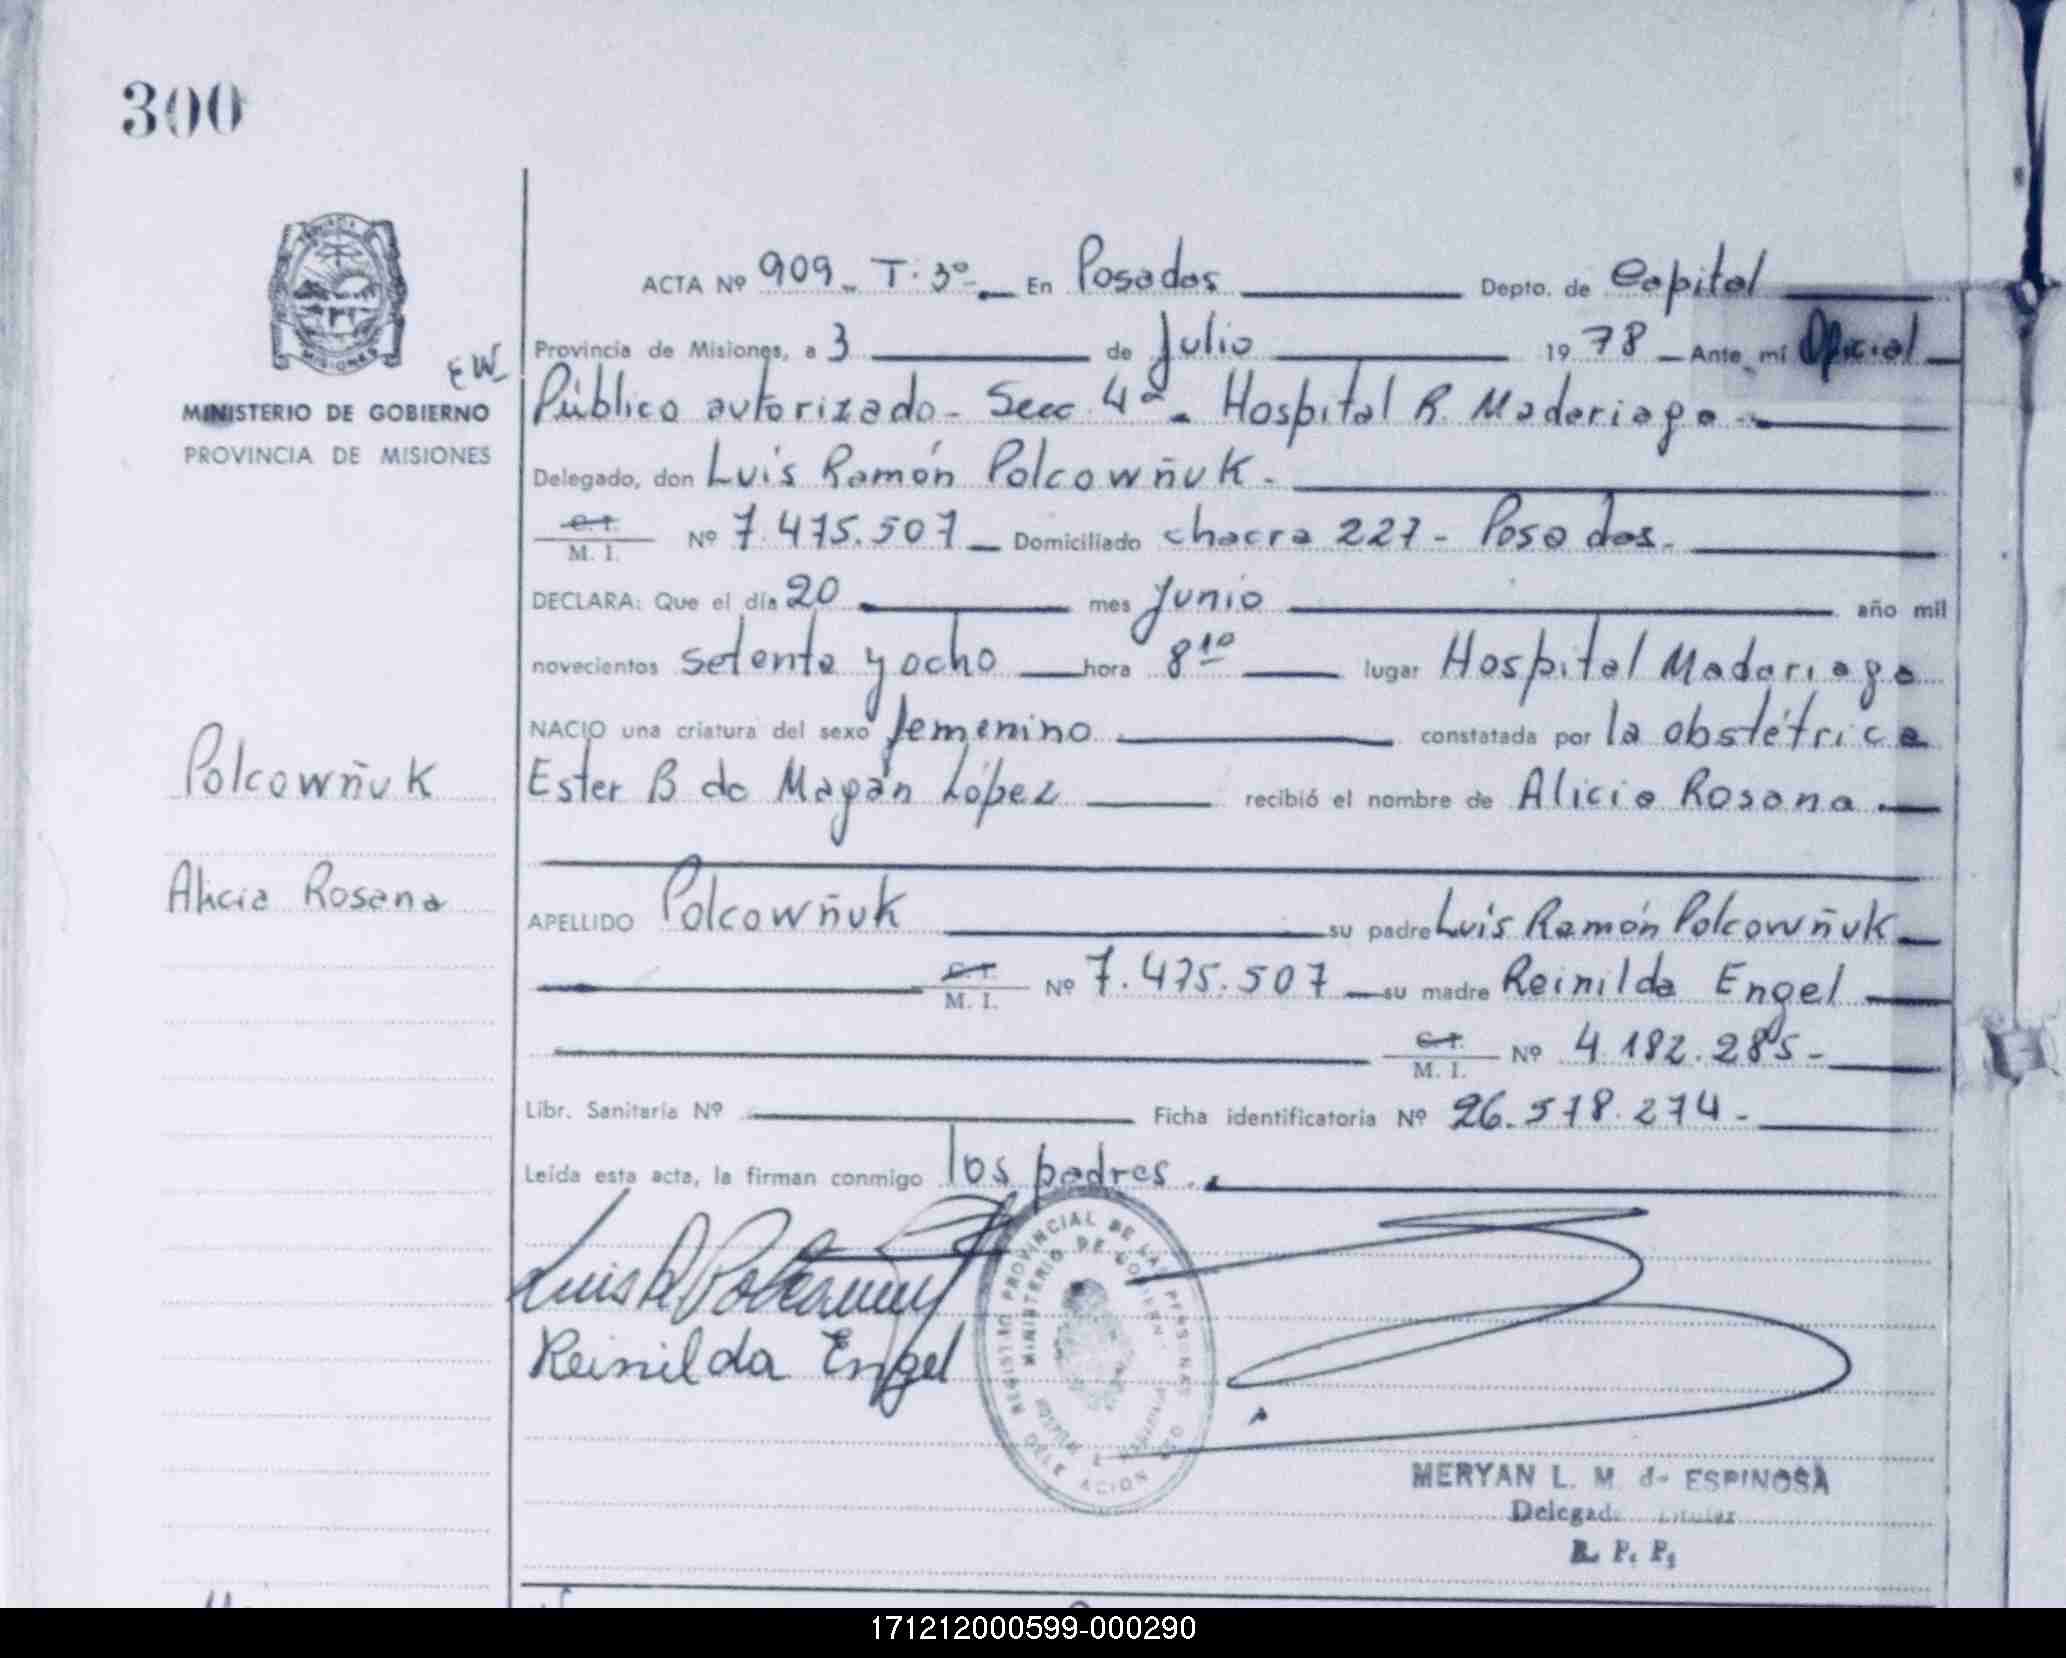 300
MISIONES
MINISTERIO DE GOBIERNO
PROVINCIA DE MISIONES
EW
ACTA Nº 909 - T. 3º - En Posadas Depto. de Capital
Provincia de Misiones, a 3 de Julio 1978 Ante mí Oficial
Público autorizado - Secc 4ª - Hospital R. Madariaga -
Delegado, don Luis Ramón Polcowñuk -
C. I.
M. I. Nº 7.475.507 - Domiciliado chacra 227 - Posadas -
DECLARA: Que el día 20 mes Junio año mil
novecientos setenta y ocho hora 8 10 lugar Hospital Madariaga
NACIO una criatura del sexo femenino constatada por la obstétrica
Polcowñuk
Ester B de Magán López recibió el nombre de Alicia Rosana
Alicia Rosana
APELLIDO Polcowñuk su padre Luis Ramón Polcowñuk
C. I.
M. I. Nº 7.475.507 su madre Reinilda Engel
C. I.
M. I. Nº 4.182.285 -
Libr. Sanitaria Nº Ficha identificatoria Nº 26.578.274 -
Leída esta acta, la firman conmigo los padres .
Luis R Polcowñuk
Reinilda Engel
REGISTRO PROVINCIAL DE LAS PERSONAS
MINISTERIO DE GOBIERNO
DELEGACION
MERYAN L. M. de ESPINOSA
Delegada Titular
R. P. P.
171212000599-000290